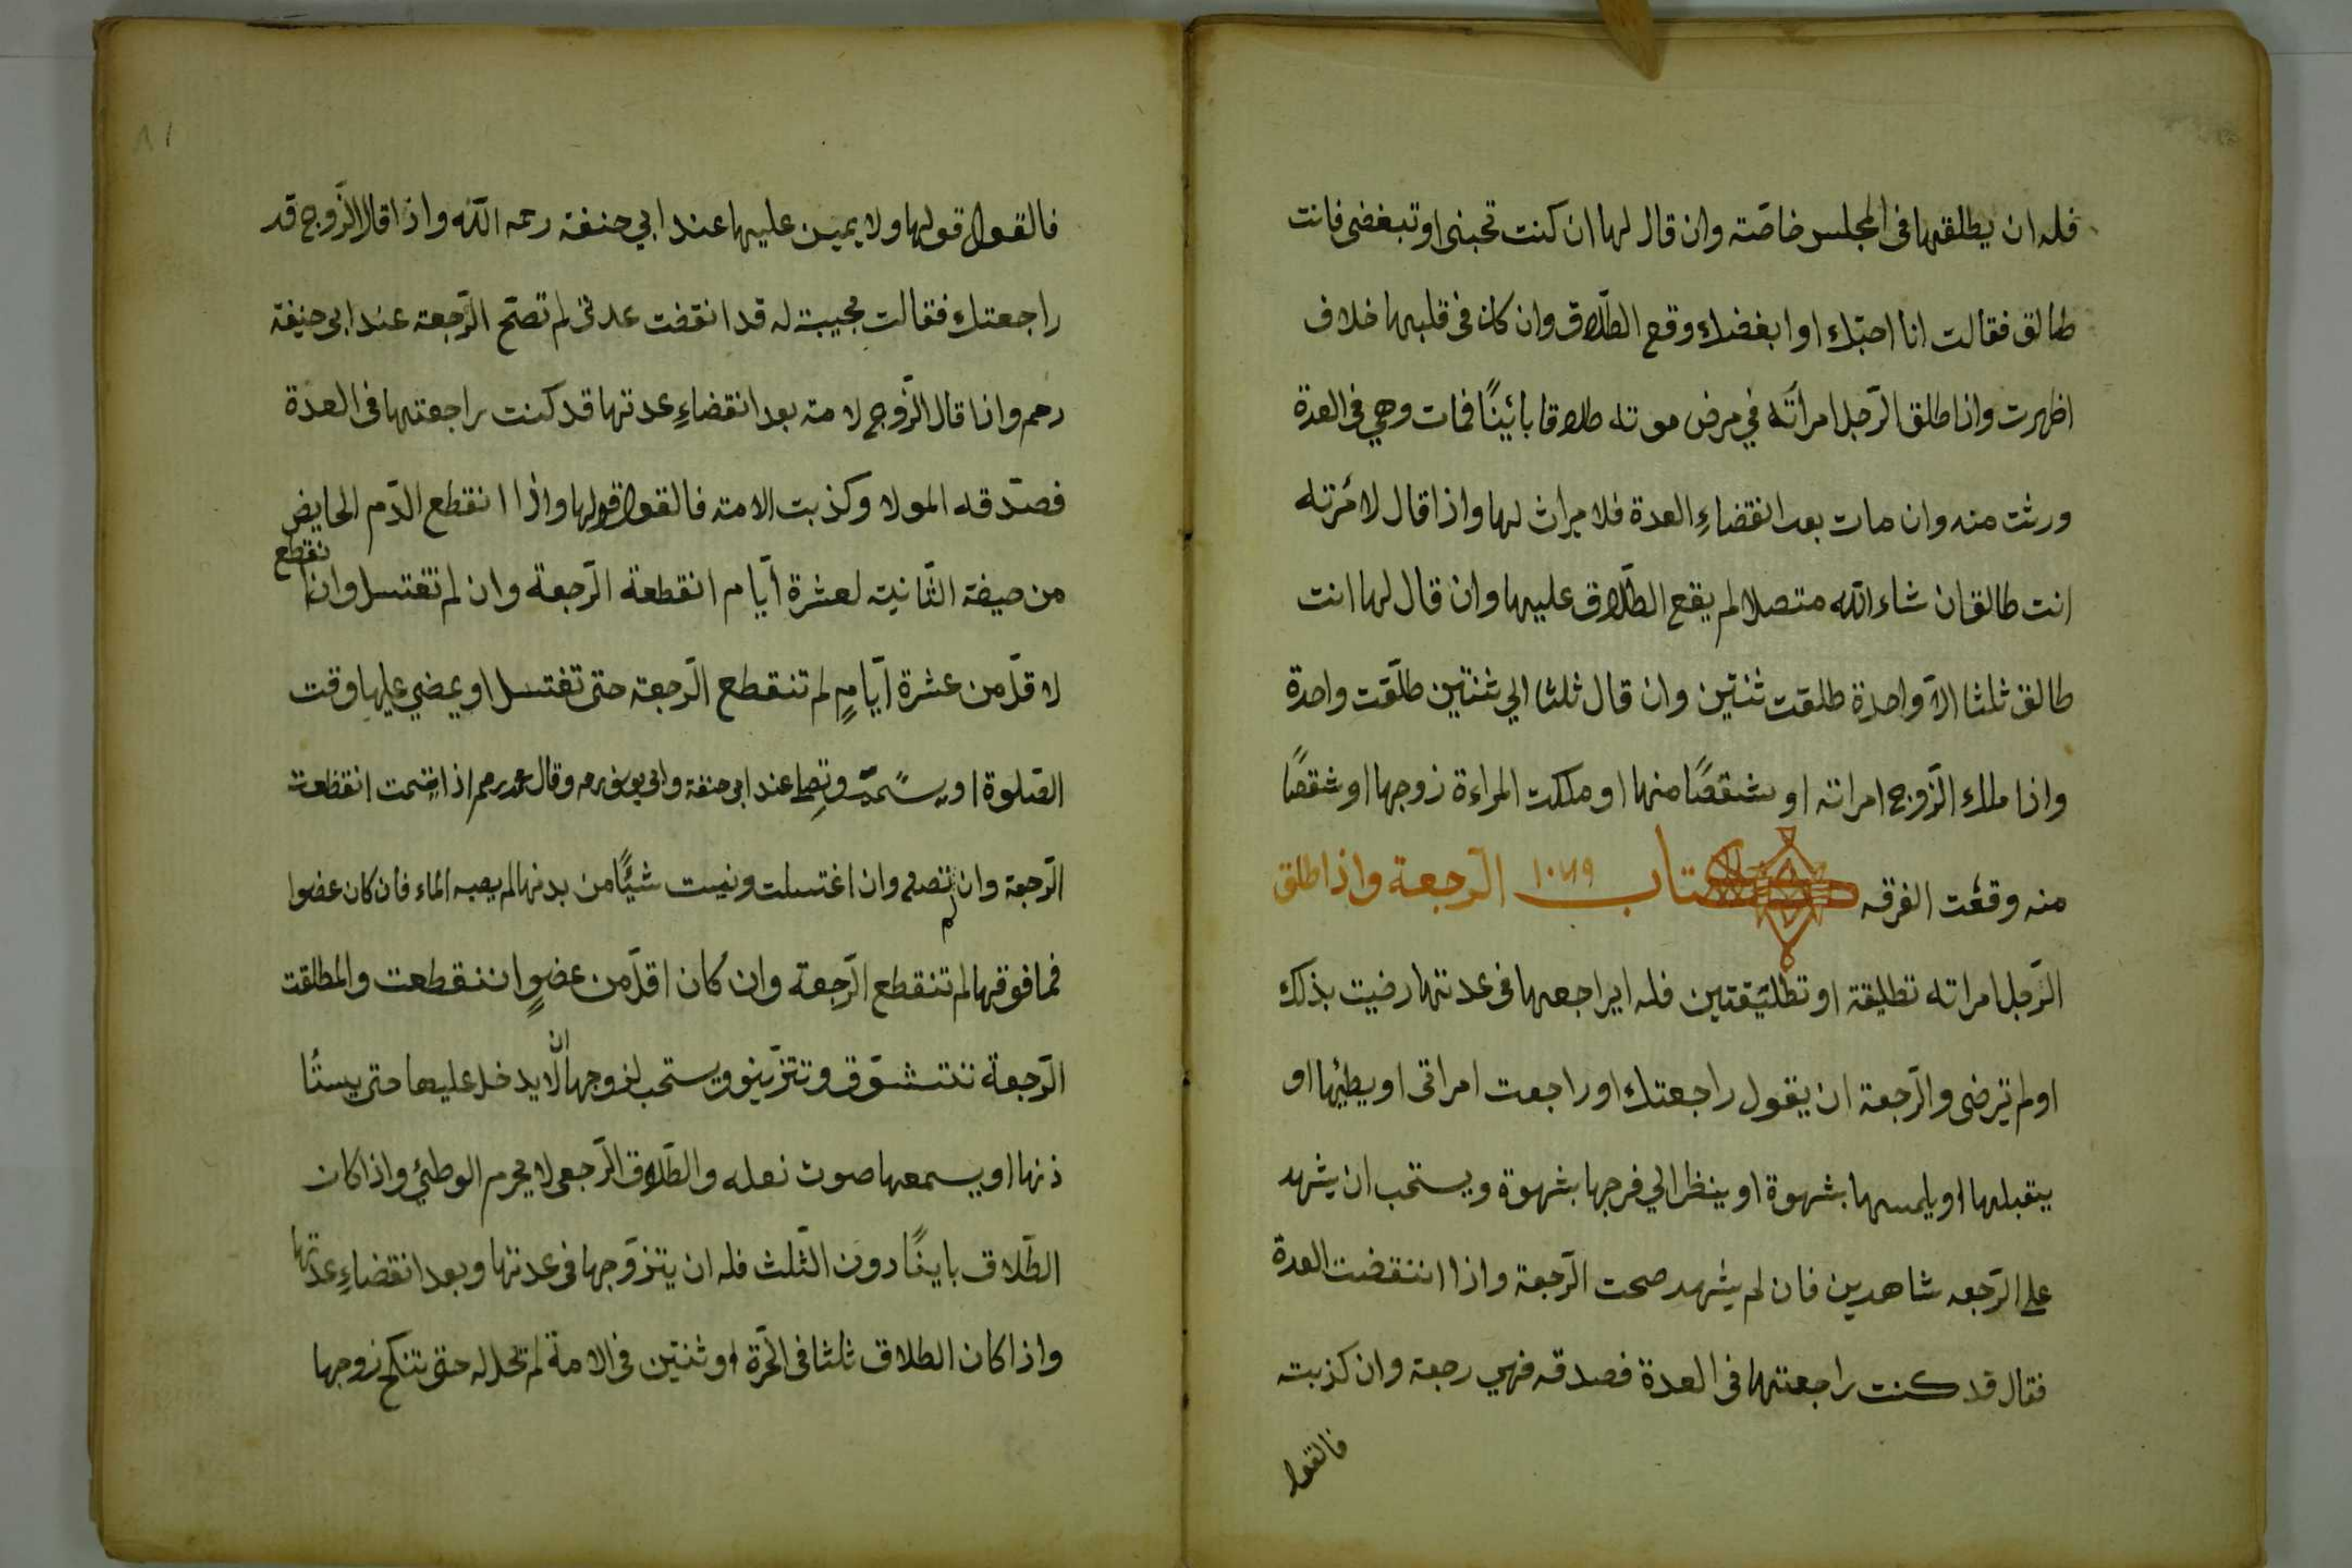 فله ان يطلقها فى المجلس خاصّته وان قال لها ان كنت تحبنى او تبغضى فانت
طالق فقالت انا احبّك او ابغضك وقع الطّلاق وان كان فى قلبها خلاف
اظهرت واذا طلق الرّجل امرأته في مرض موته طلاقا بائينًا فمات وهي فى العدة
ورثت منه وان مات بعد انقضاءِ العدة فلا ميراث لها واذا قال لامرته
انت طالق ان شاء اللّه متصلا لم يقع الطّلاق عليها وان قال لها انت
طالق ثلثا الاّ واحدة طلقت ثنتين وان قال ثلثا الي ثنتين طلّقت واحدة
واذا ملك الزّوج امراته او شقصًا منها او ملكت المراءة زوجها او شقصًا
منه وقعت الفرقه كتاب ١٠٧٩ الرّجعة واذا طلق
الرّجل امراته تطليقة او تطليقتين فله ايراجعها فى عدتها رضيت بذلك
اولم ترضى والرّجعة ان يقول راجعتك او راجعت امراتى او يطئها او
يتقبلها او يلمسها بشهوة او ينظر الي فرجها بشهوة ويستحب ان يشهد
على الرّجعه شاهدين فان لم يشهد صحت الرّجعة واذا انتقضت العدة
فقال قد كنت راجعتها فى العدة فصدقه فهي رجعة وان كذبته
فالقول
٨١
فالقول قولها ولا يمين عليها عند ابي حنفة رحمه اللّه واذا قال الزّوج قد
راجعتك فقالت مجيبة له قد انقضت عدتى لم تصحّ الرّجعة عند ابى حنيفة
رحمه واذا قال الزّوج لامته بعد انقضاءِ عدتها قد كنت راجعتها فى العدة
فصدّقه المولا وكذبت الامته فالقول قولها واذا انقطع الدّم الحايض
من حيضة الثّانية لعشرة ايّام انقطعة الرّجعة وان لم تغتسل وان انقطع
لا قلّ من عشرة ايّامٍ لم تنقطع الرّجعة حتى تغتسل او يمضي عليها وقت
الصّلوة او وتصلى عند ابى حنفة وابى يوسف رحمه وقال محمد رحمه اذا تيمت انقطعت
الرّجعة وان لم تصلى وان اغتسلت ونيست شيًّا من بدنها لم يصبه الماء فان كان عضوا
فما فوقها لم تنقطع الرّجعة وان كان اقلّ من عضوٍ اننقطعت والمطلقت
الرّجعة تتشوّق وتتزيّنو ويستحب لزوجها ان لا يدخل عليها حتى يستا
ذنها او يسمعها صوت نعله والطّلاق الرّجعى لا يحرم الوطئي واذا كان
الطّلاق باينًا دون الثّلث فله ان يتزوّجها فى عدتها وبعد انقضاءِ عدتها
واذا كان الطلاق ثلثا فى الحرّة او ثنتين فى الامة لم تحل له حتى تنكح زوجها